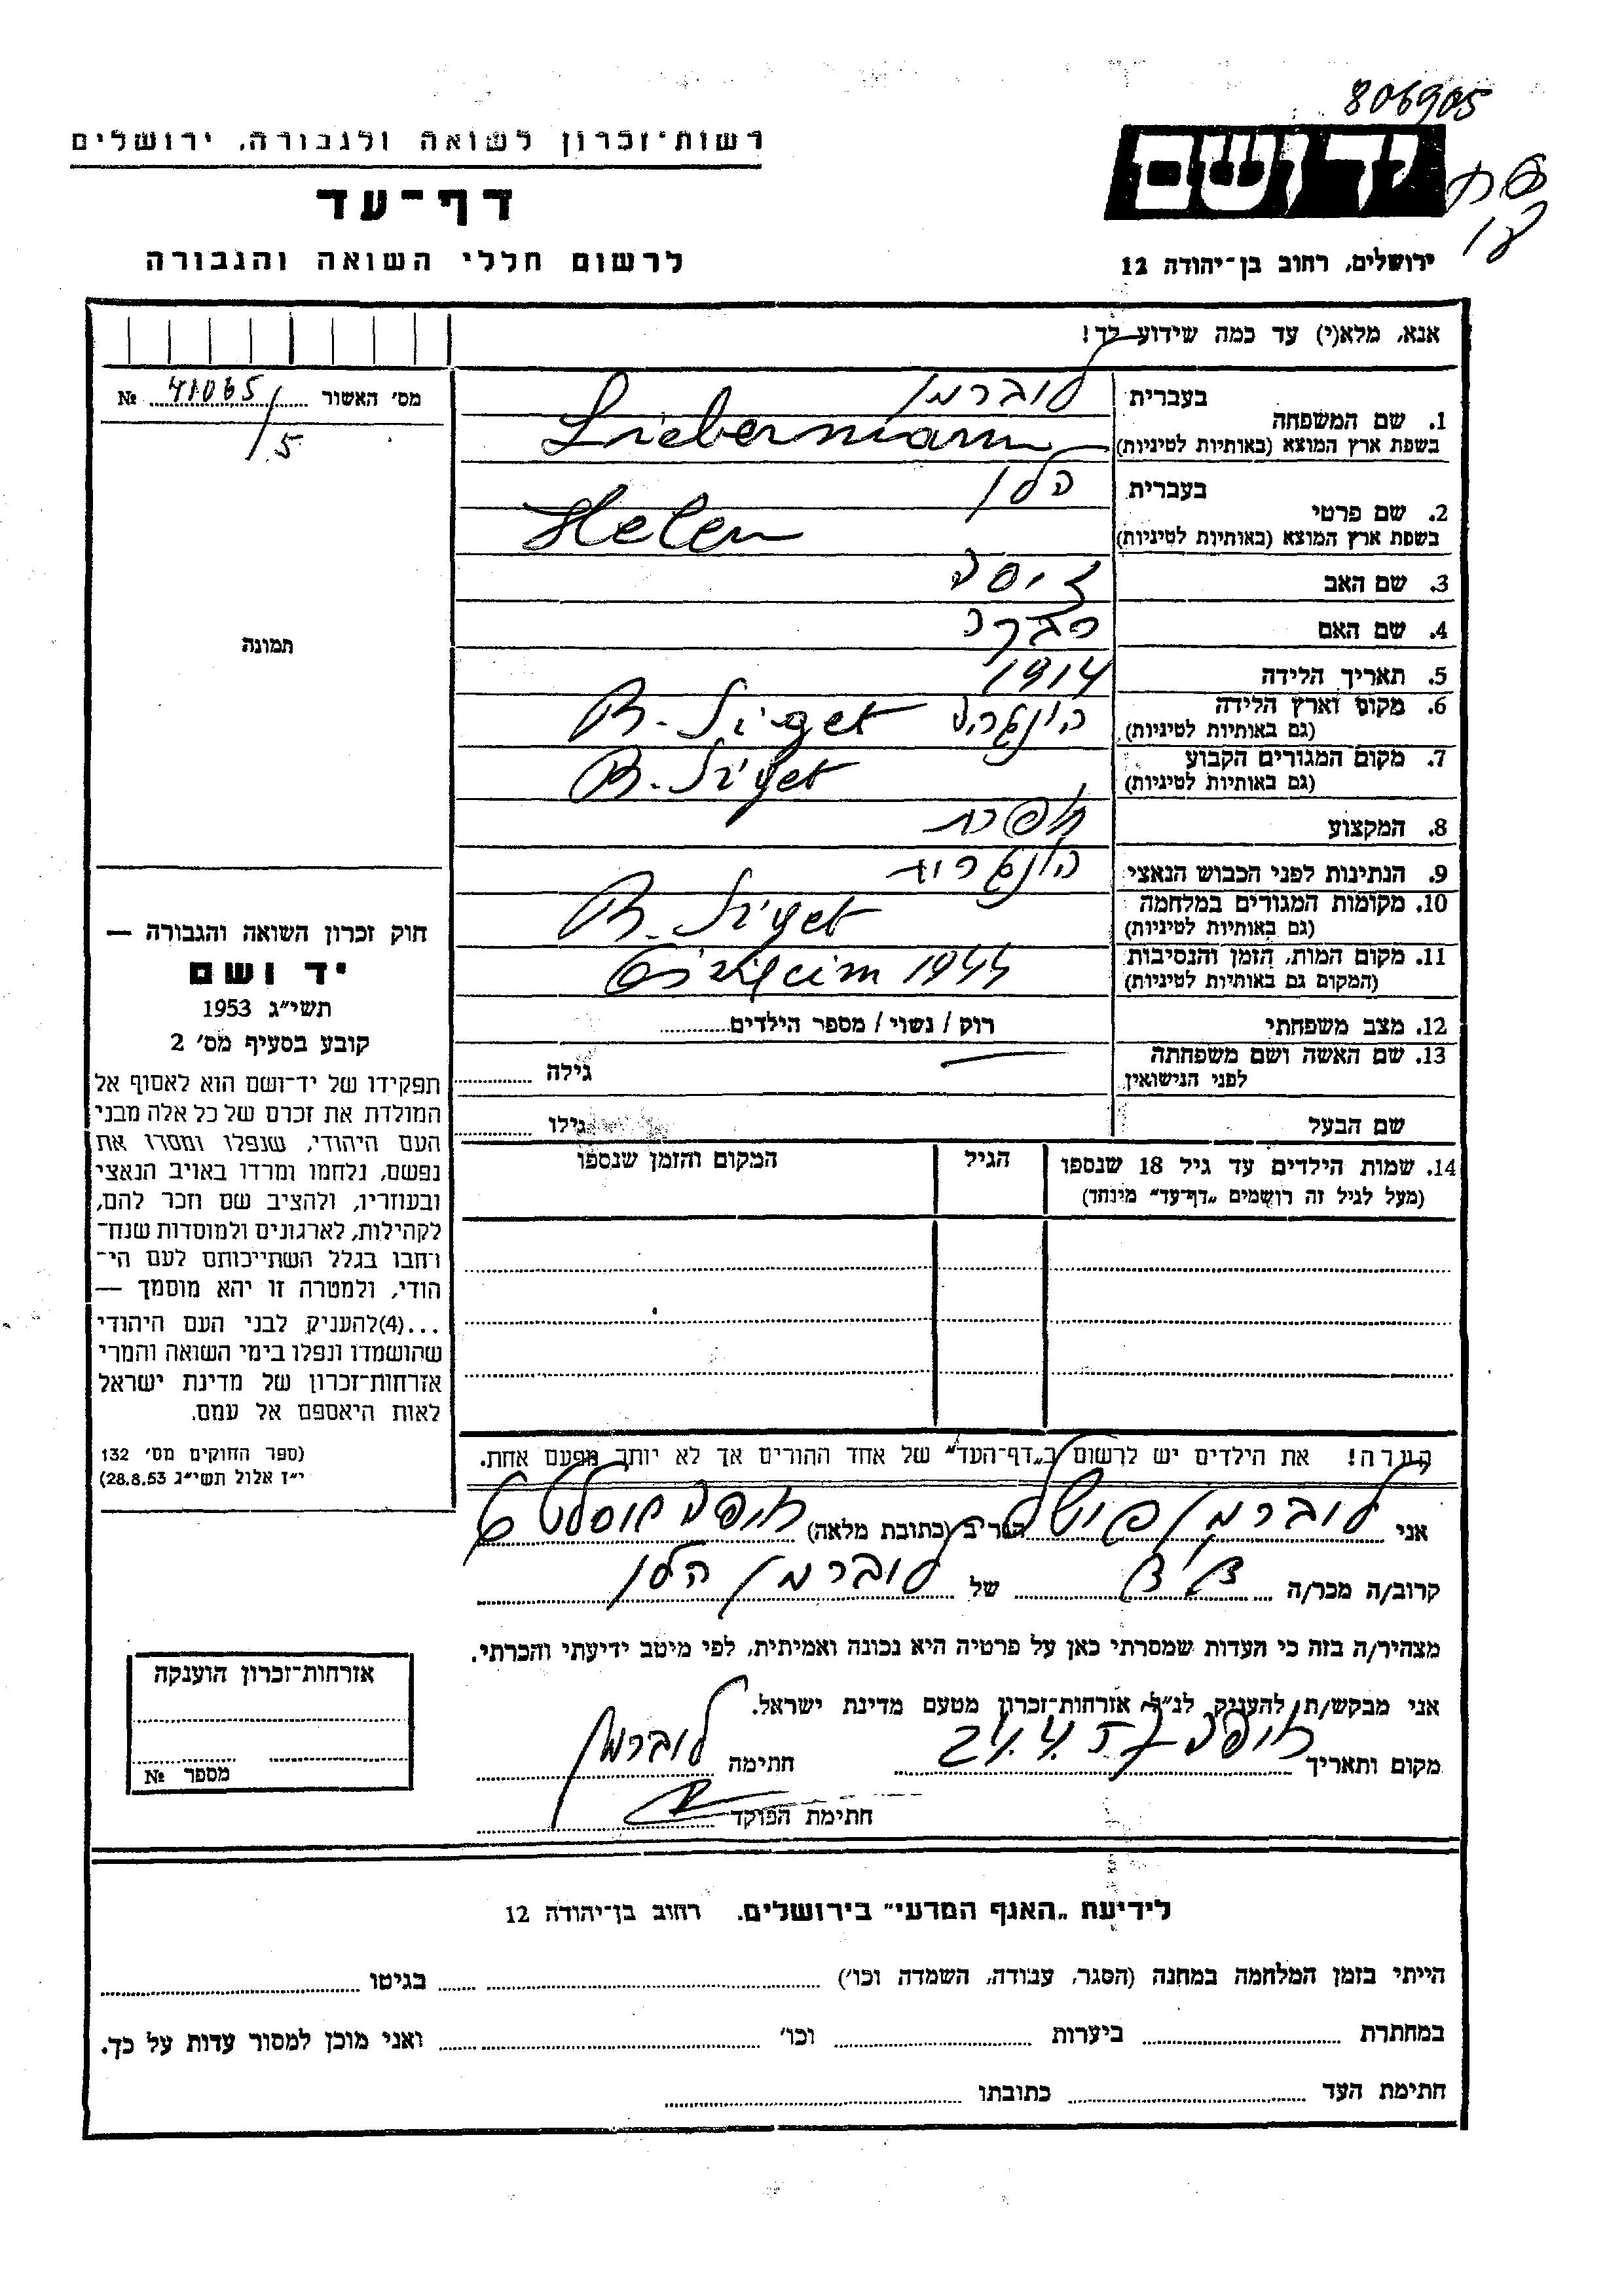 806905
רשות־זכרון לשואה ולגבורה, ירושלים
יד ושם
דף־עד
לרשום חללי השואה והגבורה
ירושלים, רחוב בן־יהודה 12
אנא, מלא(י) עד כמה שידוע לך!
מס׳ האשור 41065/5 №
בעברית
לוברמן
1. שם המשפחה
בשפת ארץ המוצא (באותיות לטיניות)
Liebermann
בעברית
הלן
2. שם פרטי
בשפת ארץ המוצא (באותיות לטיניות)
Helen
3. שם האב
4. שם האם רבקה
5. תאריך הלידה 1914
6. מקום וארץ הלידה
(גם באותיות לטיניות)
B. Siget
7. מקום המגורים הקבוע
(גם באותיות לטיניות)
B. Siget
8. המקצוע תופרת
9. הנתינות לפני הכבוש הנאצי הונגרית
10. מקומות המגורים במלחמה
(גם באותיות לטיניות)
B. Siget
11. מקום המות, הזמן והנסיבות
(המקום גם באותיות לטיניות)
1944
12. מצב משפחתי רוק / נשוי / מספר הילדים
13. שם האשה ושם משפחתה
לפני הנישואין
גילה
שם הבעל גילו
14. שמות הילדים עד גיל 18 שנספו
(מעל לגיל זה רושמים „דף־עד” מיוחד)
הגיל
המקום והזמן שנספו
הערה! את הילדים יש לרשום ב„דף־העד” של אחד ההורים אך לא יותר מפעם אחת.
תמונה
חוק זכרון השואה והגבורה —
יד ושם
תשי״ג 1953
קובע בסעיף מס׳ 2
תפקידו של יד־ושם הוא לאסוף אל
המולדת את זכרם של כל אלה מבני
העם היהודי, שנפלו ומסרו את
נפשם, נלחמו ומרדו באויב הנאצי
ובעוזריו, ולהציב שם וזכר להם,
לקהילות, לארגונים ולמוסדות שנח־
רחבו בגלל השתייכותם לעם הי־
הודי, ולמטרה זו יהא מוסמך —
...(4)להעניק לבני העם היהודי
שהושמדו ונפלו בימי השואה והמרי
אזרחות־זכרון של מדינת ישראל
לאות היאספם אל עמם.
(ספר החוקים מס׳ 132
י״ז אלול תשי״ג 28.8.53)
אני לוברמן פישל הגר/ים (כתובת מלאה) חיפה
קרוב/ה מכר/ה של לוברמן הלן
מצהיר/ה בזה כי העדות שמסרתי כאן על פרטיה היא נכונה ואמיתית, לפי מיטב ידיעתי והכרתי.
אני מבקש/ת להעניק לנ״ל אזרחות־זכרון מטעם מדינת ישראל.
מקום ותאריך חיפה 24.4.57 חתימה לוברמן
חתימת הפוקד
אזרחות־זכרון הוענקה
מספר №
לידיעת „האגף המדעי” בירושלים. רחוב בן־יהודה 12
הייתי בזמן המלחמה במחנה (הסגר, עבודה, השמדה וכו׳) בגיטו
במחתרת ביערות וכו׳ ואני מוכן למסור עדות על כך.
חתימת העד כתובתו